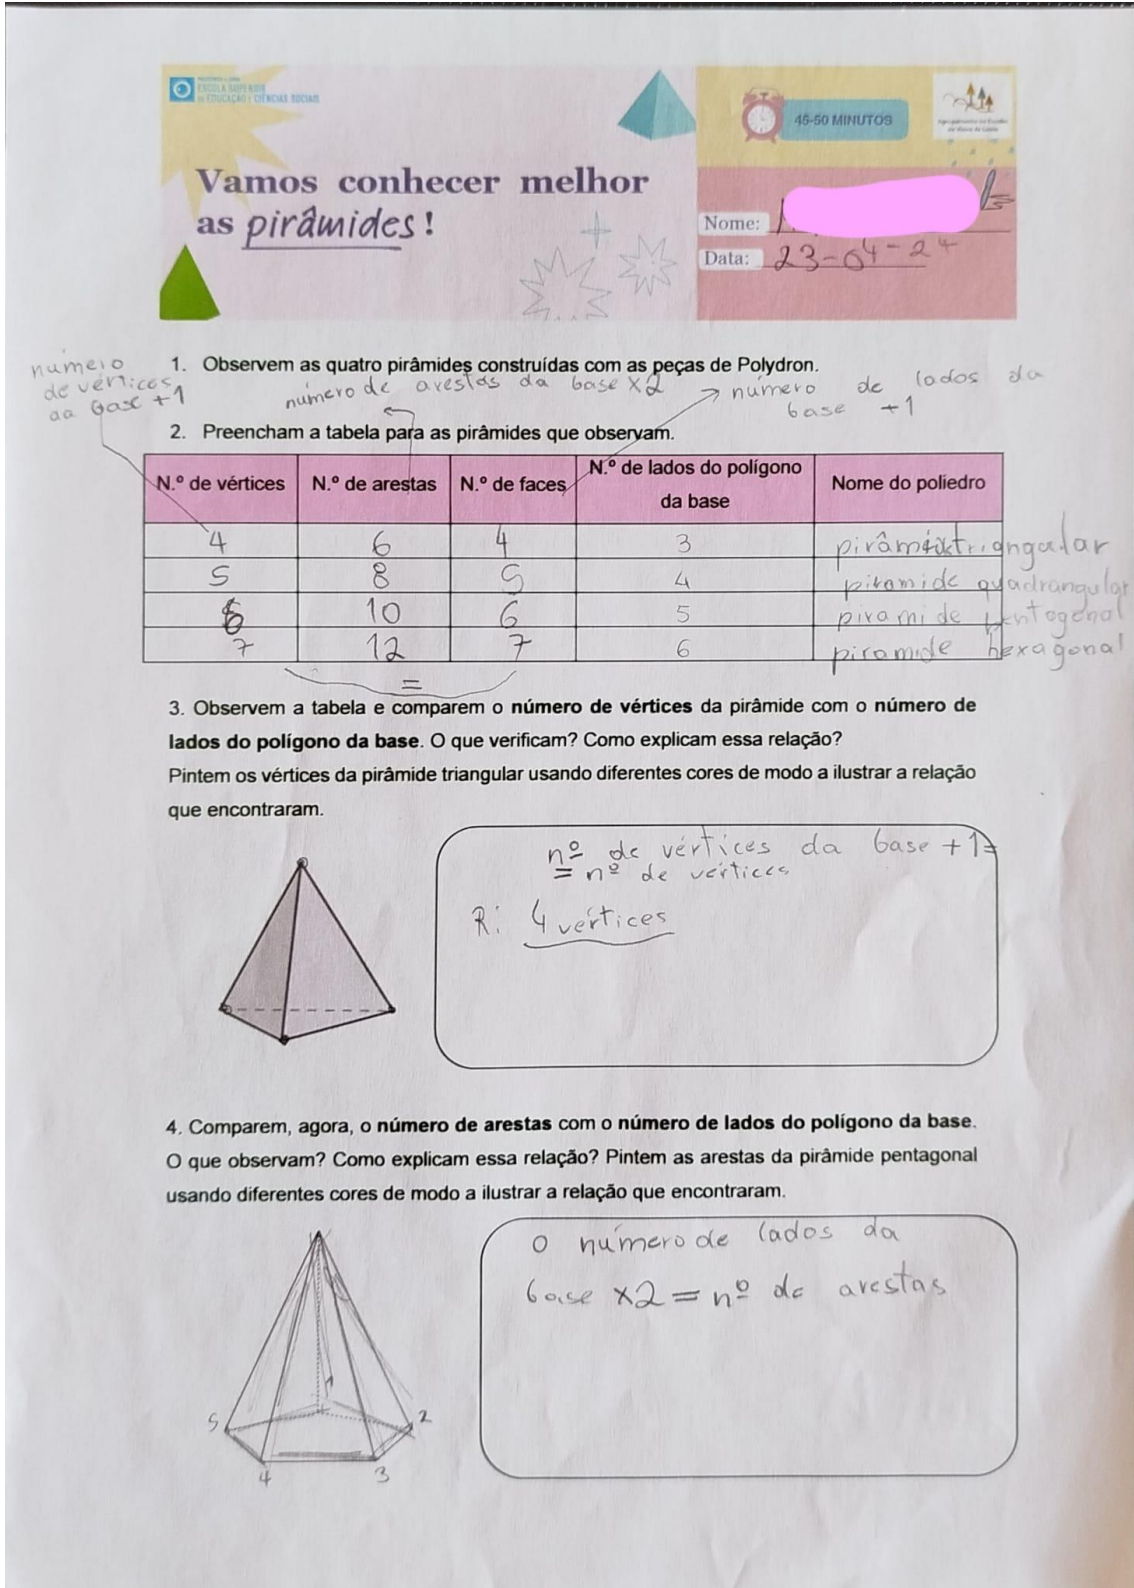 ESCOLA SUPERIOR
DE EDUCAÇÃO E CIÊNCIAS SOCIAIS
45-50 MINUTOS
Vamos conhecer melhor
as pirâmides!
Nome:
Data: 23-04-24
1. Observem as quatro pirâmides construídas com as peças de Polydron.
número
de vértices
da base +1
número de arestas da base x2
número de lados da
base +1
2. Preencham a tabela para as pirâmides que observam.
N.º de vértices N.º de arestas N.º de faces N.º de lados do polígono da base Nome do poliedro
4 6 4 3 pirâmide triangular
5 8 5 4 piramide quadrangular
6 10 6 5 piramide pentogonal
7 12 7 6 piramide hexagonal
=
3. Observem a tabela e comparem o número de vértices da pirâmide com o número de
lados do polígono da base. O que verificam? Como explicam essa relação?
Pintem os vértices da pirâmide triangular usando diferentes cores de modo a ilustrar a relação
que encontraram.
nº de vértices da base +1=
= nº de vértices
R: 4 vértices
4. Comparem, agora, o número de arestas com o número de lados do polígono da base.
O que observam? Como explicam essa relação? Pintem as arestas da pirâmide pentagonal
usando diferentes cores de modo a ilustrar a relação que encontraram.
O número de lados da
base x2 = nº de arestas
1
5 2
4 3